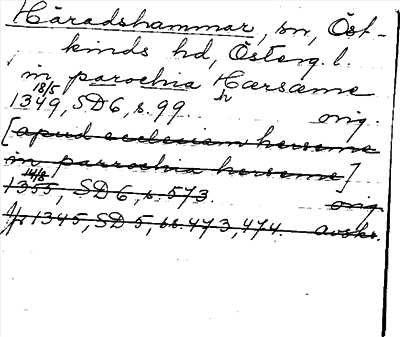 Häradshammar, sn, Öst-
kinds hd, Österg. l.
in parochia Hærsæme
18/5 h
1349, SD6, s. 99. orig.
[apud ecclesiam herseme
in parrochia herseme]
14/8
1355, SD6, s. 573. orig.
1345, SD5, ss. 473, 474. avskr.